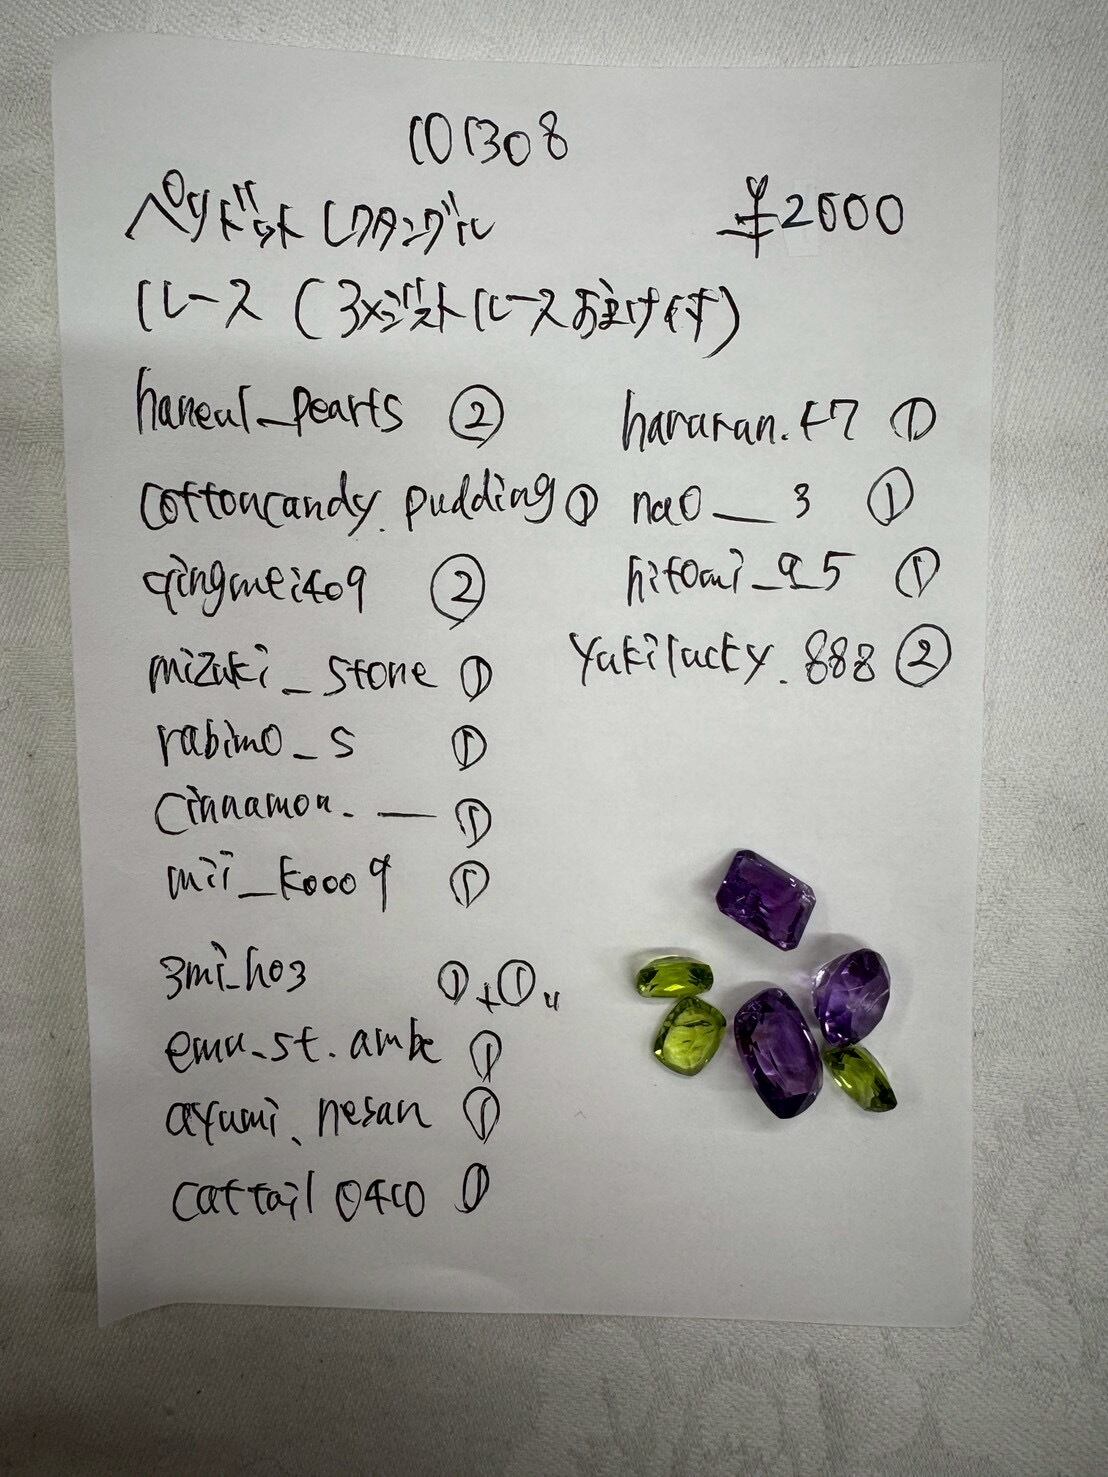 101308
ペリドットレクタングル ¥2000
ルース (3×ジストルースお付け付)
haneul_pearls ②
cottoncandy.pudding ①
qingmei409 ②
mizuki_stone ①
rabimo_s ①
cinnamon.__ ①
mii_k0009 ①
3mi_ho3 ①+①
emu_st.ambe ①
ayumi.nesan ①
cattail0410 ①
hararan.t7 ①
nao__3 ①
hitomi_9_5 ①
yukilucky.888 ②